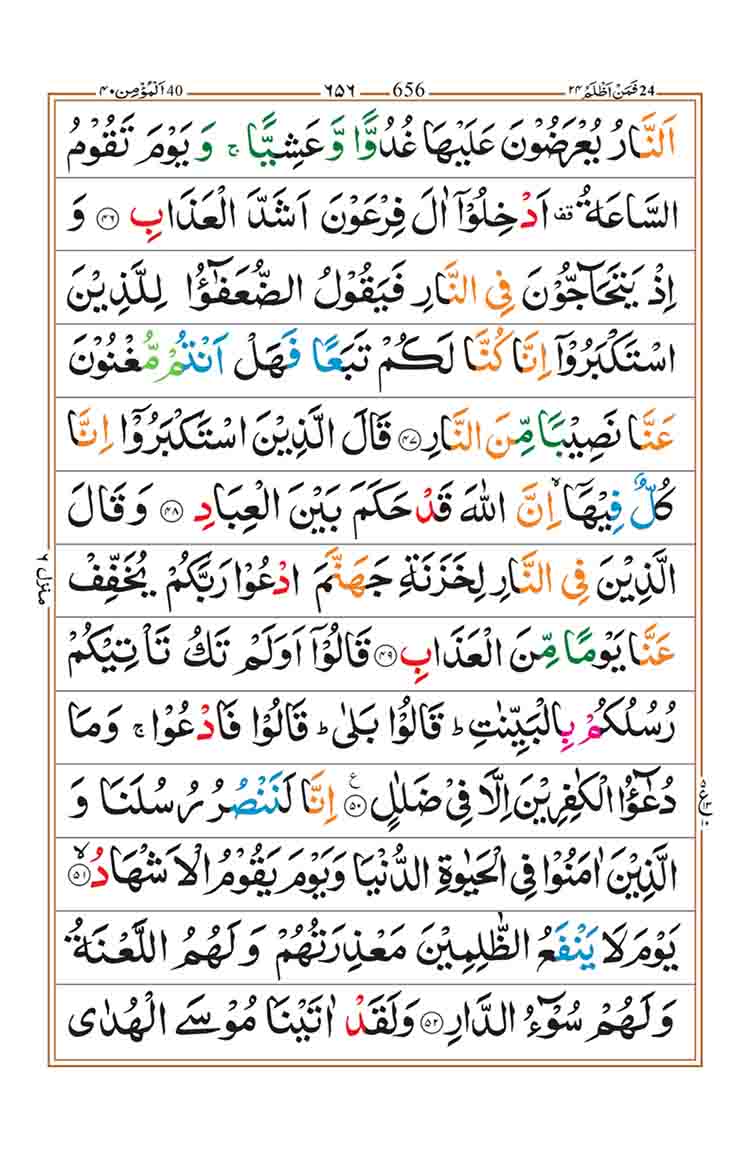 24 فَمَنْ اَظْلَمُ ٢٤ 656 ٦٥٦ 40 اَلْمُؤْمِن ٤٠
اَلنَّارُ يُعْرَضُوْنَ عَلَيْهَا غُدُوًّا وَّ عَشِيًّا ۚ وَ يَوْمَ تَقُوْمُ
السَّاعَةُ قف اَدْخِلُوْۤا اٰلَ فِرْعَوْنَ اَشَدَّ الْعَذَابِ ﴿۴۶﴾ وَ
اِذْ يَتَحَآجُّوْنَ فِي النَّارِ فَيَقُوْلُ الضُّعَفٰٓؤُا لِلَّذِيْنَ
اسْتَكْبَرُوْۤا اِنَّا كُنَّا لَكُمْ تَبَعًا فَهَلْ اَنْتُمْ مُّغْنُوْنَ
عَنَّا نَصِيْبًا مِّنَ النَّارِ ﴿۴۷﴾ قَالَ الَّذِيْنَ اسْتَكْبَرُوْۤا اِنَّا
كُلٌّ فِيْهَاۤ ۙ اِنَّ اللّٰهَ قَدْ حَكَمَ بَيْنَ الْعِبَادِ ﴿۴۸﴾ وَ قَالَ
الَّذِيْنَ فِي النَّارِ لِخَزَنَةِ جَهَنَّمَ ادْعُوْا رَبَّكُمْ يُخَفِّفْ
عَنَّا يَوْمًا مِّنَ الْعَذَابِ ﴿۴۹﴾ قَالُوْۤا اَوَلَمْ تَكُ تَاْتِيْكُمْ
رُسُلُكُمْ بِالْبَيِّنٰتِ ؕ قَالُوْا بَلٰى ؕ قَالُوْا فَادْعُوْا ۚ وَمَا
دُعٰٓؤُا الْكٰفِرِيْنَ اِلَّا فِيْ ضَلٰلٍ ﴿۵۰﴾ ع اِنَّا لَنَنْصُرُ رُسُلَنَا وَ
الَّذِيْنَ اٰمَنُوْا فِي الْحَيٰوةِ الدُّنْيَا وَيَوْمَ يَقُوْمُ الْاَشْهَادُ ﴿۵۱﴾ ۙ
يَوْمَ لَا يَنْفَعُ الظّٰلِمِيْنَ مَعْذِرَتُهُمْ وَلَهُمُ اللَّعْنَةُ
وَلَهُمْ سُوْٓءُ الدَّارِ ﴿۵۲﴾ وَلَقَدْ اٰتَيْنَا مُوْسَى الْهُدٰى
منزل ٦